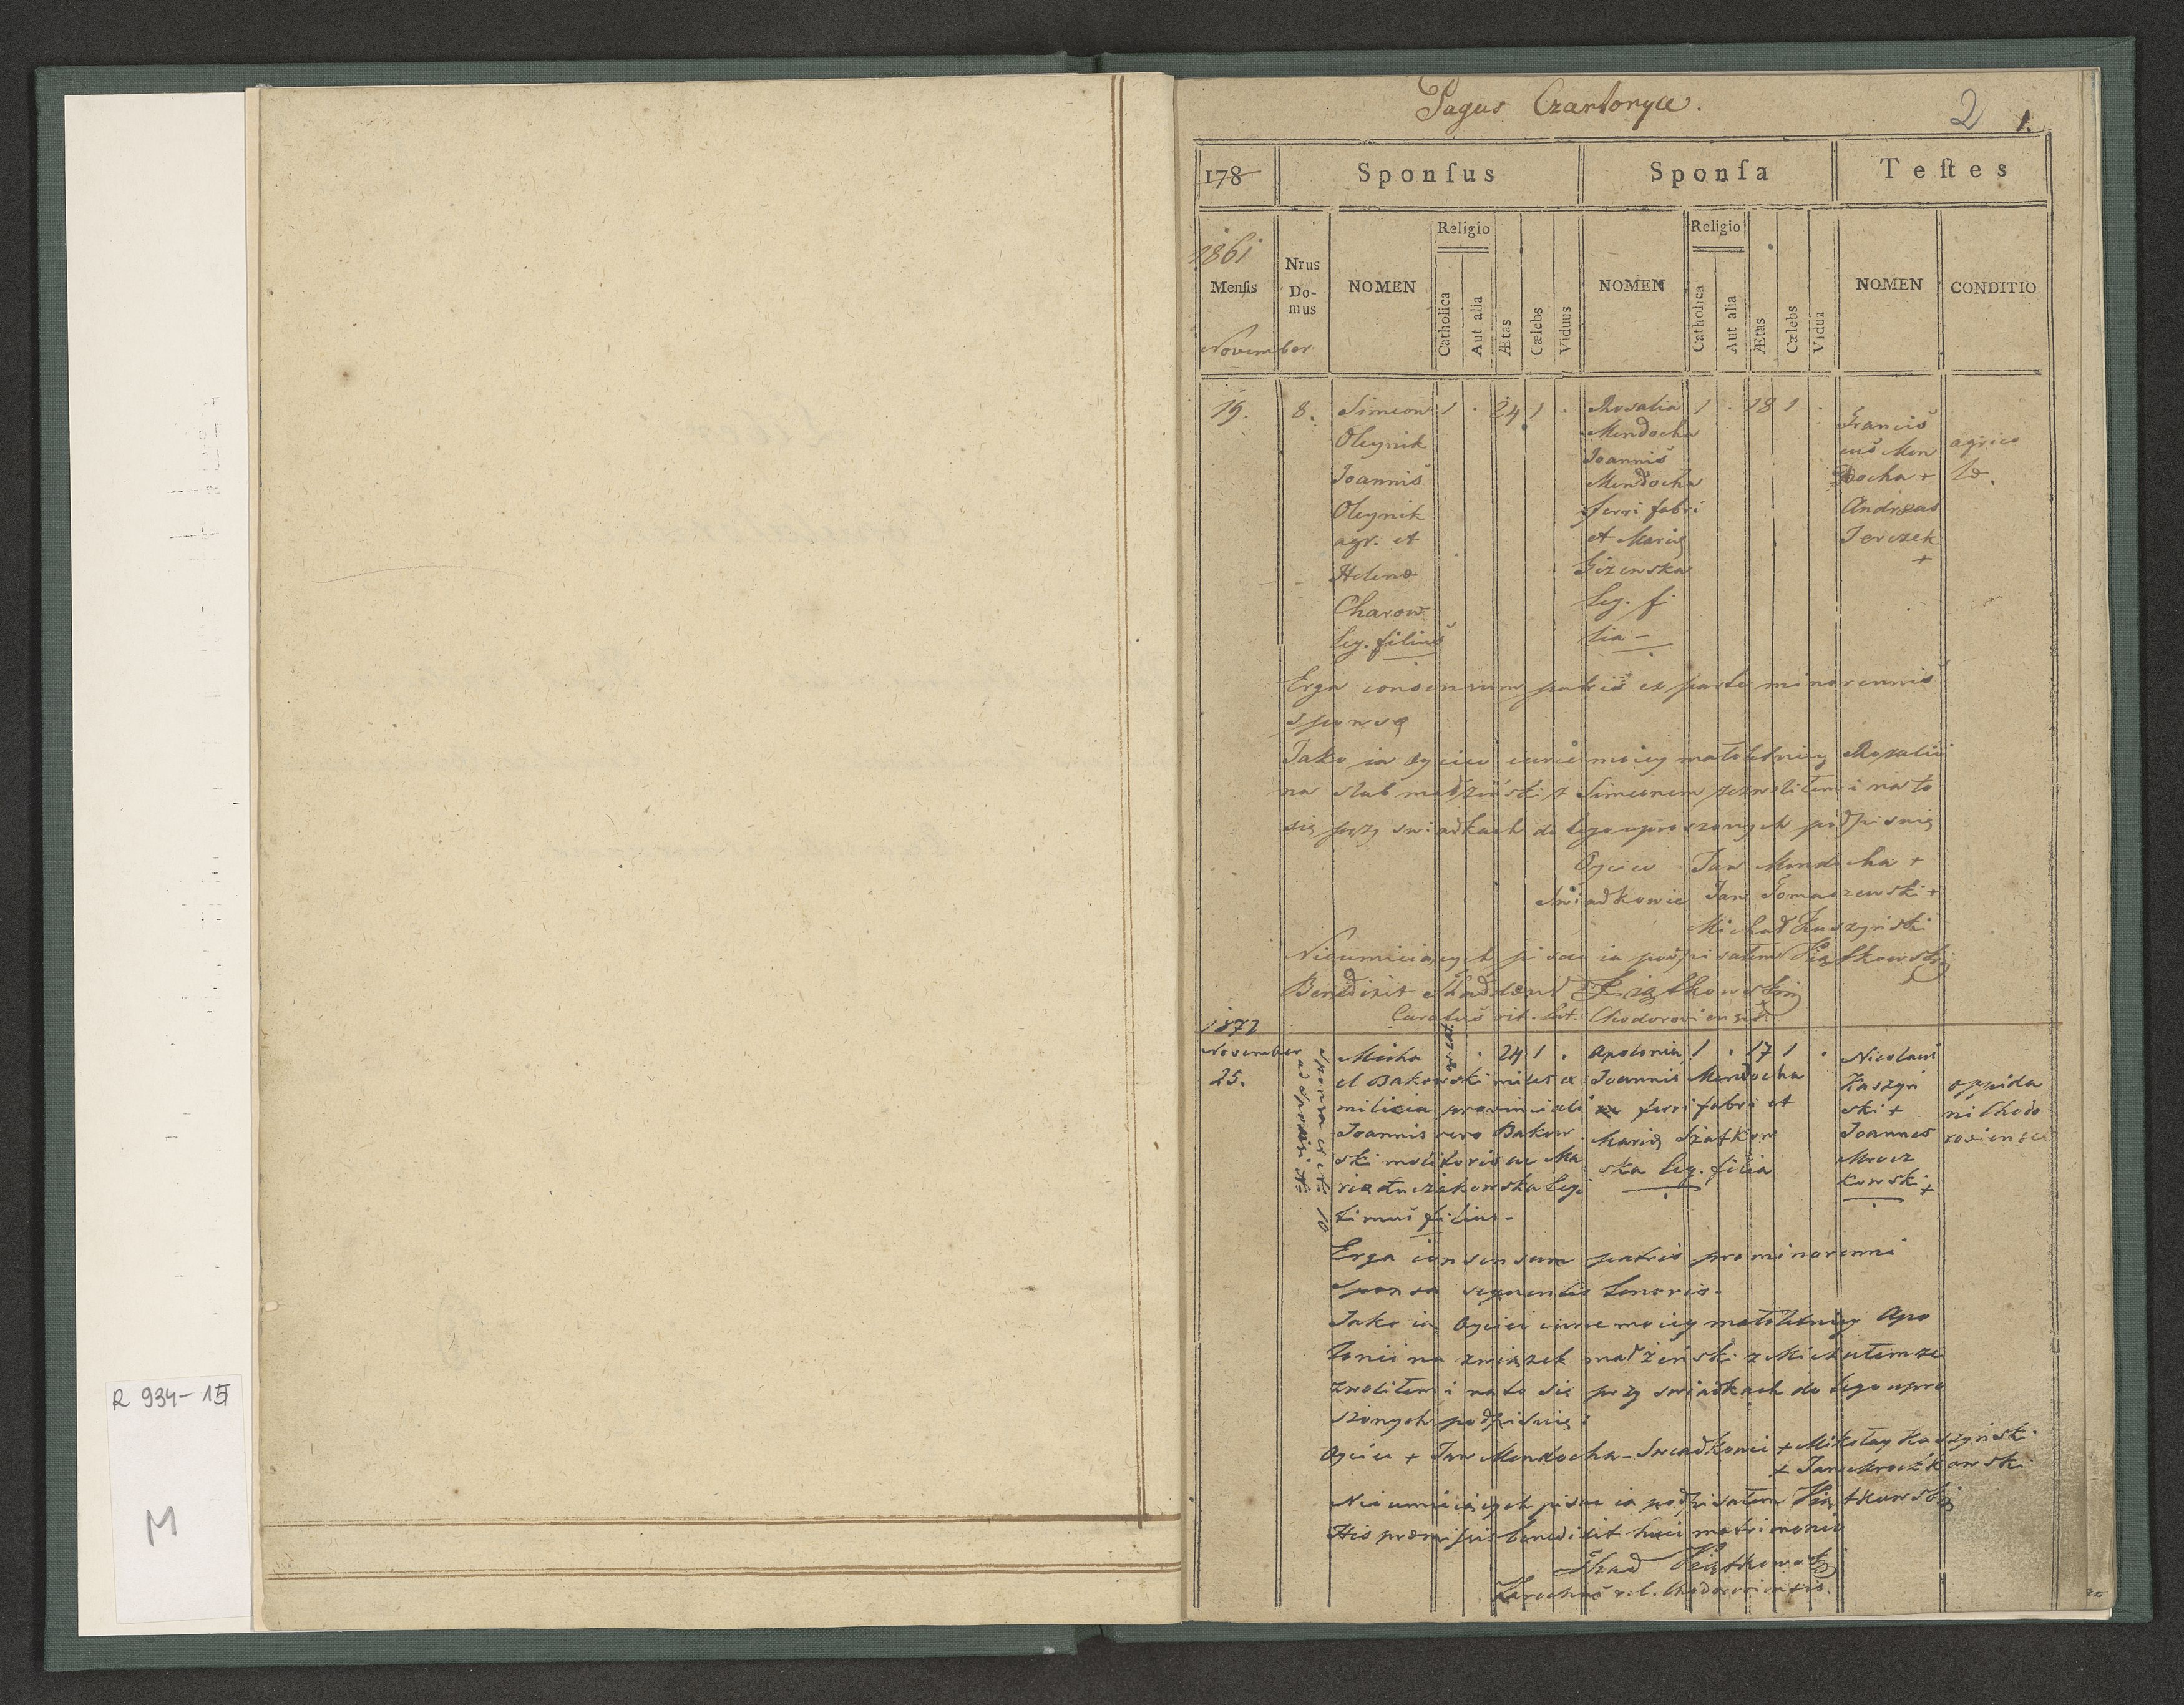 Pagus Czartoryæ.
2 1.
178
Sponſus
Sponſa
Teſtes
1861
Menſis
November
Nrus Do-
mus
NOMEN
Religio
Catholica
Aut alia
Ætas
Cælebs
Viduus
NOMEN
Religio
Catholica
Aut alia
Ætas
Cælebs
Vidua
NOMEN
CONDITIO
19. 8.
Simeon 1 . 24 1 .
Oleynik
Joannis
Oleynik
agr. et
Helenæ
Charow
leg. filius
Rosalia 1 . 18 1 .
Mendocha
Joannis
Mendocha
ferri fabri
et Marię
leg. f
lia -
Francis
cus Men
docha +
Andreas
Jerczek
+
agrico
læ.
Erga consensum patris ex parte minorennis
sponsę
Jako ia Oyciec curce moiey małoletniey Rozalii
na slub małżeński z Simeonem zezwoliłem i na to
się przy swiadkach do tego uproszonych podpisuię
Oyciec Jan Mendocha +
Swiadkowie Jan Tomaszewski +
Michał Kaszyński
Nieumieiących pisać ia podpisałem Piątkowski
Benedixit Thadæus Piątkowski
Curatus rit. lat. Chodoroviensis.
1872
November
25.
Sponsa ex № 10
ad Sponsi №
Micha r. lat. . 24 1 .
el Bakowski miles ex
milicia provinciali
Joannis vero Bakow
ski molitoris ac Ma
rię Łuczakowska legi
timus filius -
Apolonia 1 . 17 1 .
Joannis Mendocha
ferri fabri et
Marię Szatkow
ska leg. filia
Nicolaus
Kaszyń
ski +
Joannes
Mrocz
kowski +
oppida
ni Chodo
rovienses
Erga consensum patris pro minorenni
sponsa sequentis tenoris -
Jako ia Oyciec curce moiey małoletniey Apo
lonii na związek małżeński z Michałem ze
zwoliłem i na to się przy swiadkach do tego upro
szonych podpisuię:
Oyciec + Jan Mendocha - Swiadkowie + Mikołay Kaszyński
+ Jan Mroczkowski
Nieumieiących pisać ia podpisałem Piątkowski
His præmissis benedixit huic matrimonio
Thad Piątkowski
Parochus r. l. Chodoroviensis.
R 934-15
M